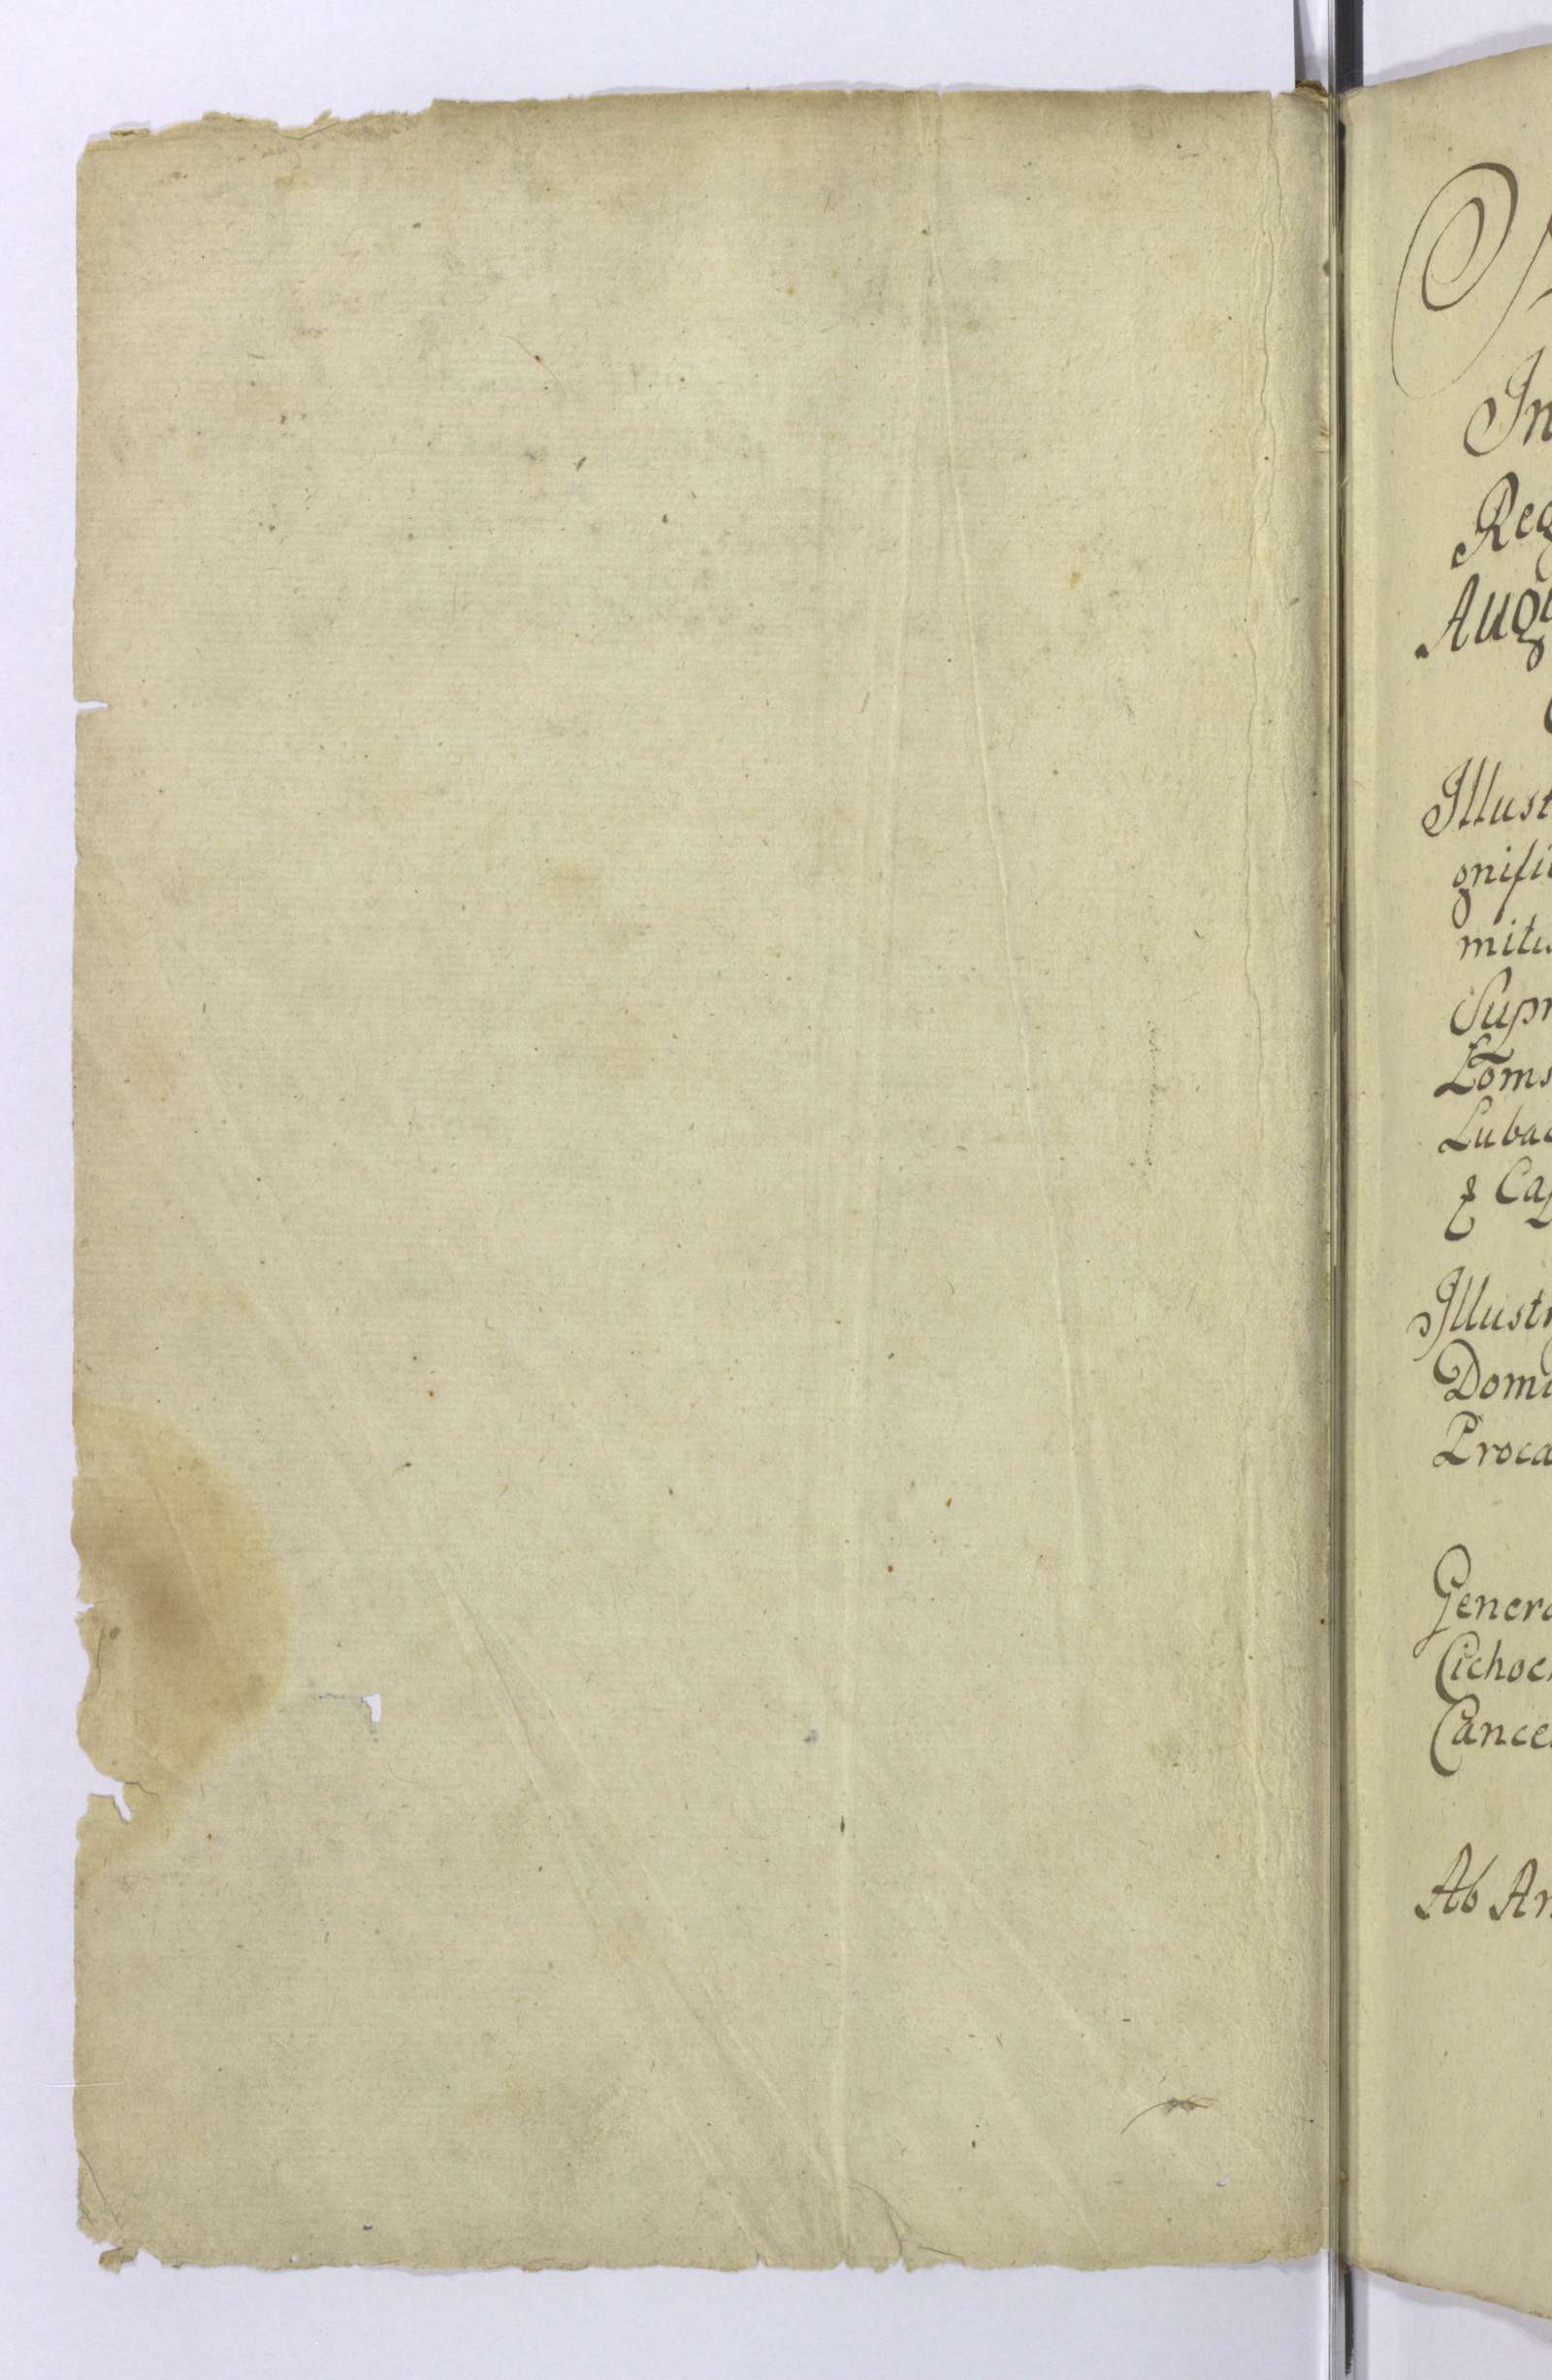 In
Reg
Augu
Illust
gnifi
mitu
Supr
Łoms
Lubac
& Cap
Illustr
Domi
Proca
Genero
Cichoc
Cancel
Ab An